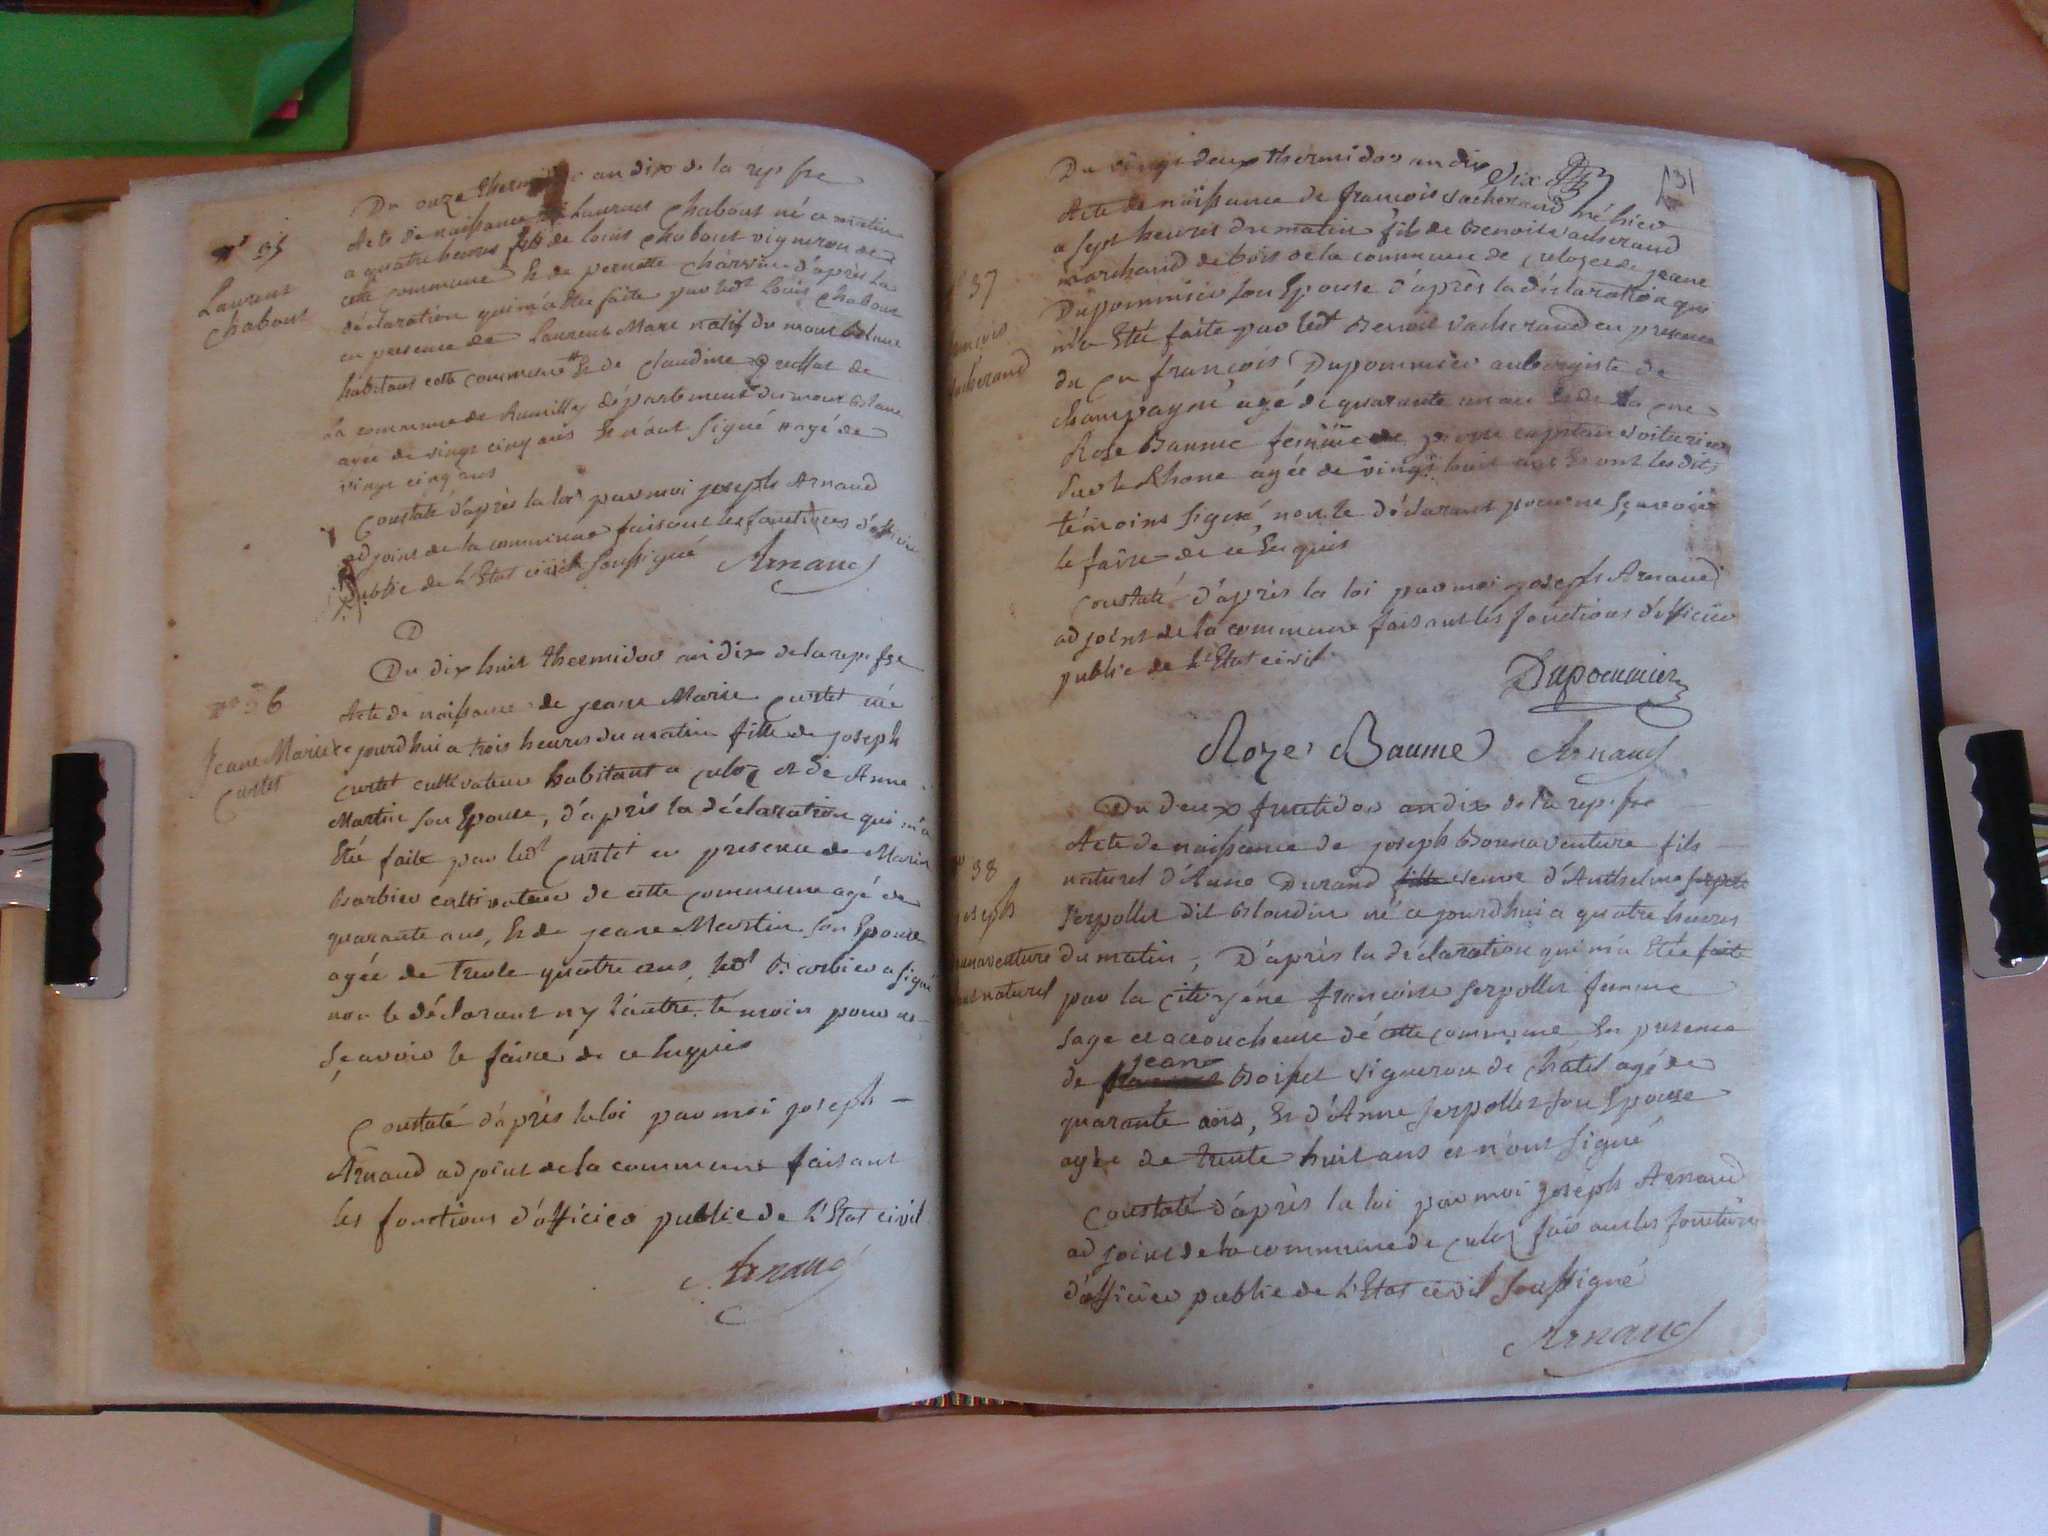 Du onze thermidor an dix de la rep fse
n° 35
Laurent
Chaboud
Acte de naissance de Laurent Chabout né ce matin
a quatre heures fils de louis Chabout vigneron de
cette commune Et de pernette Charvin d'après la
déclaration qui m'a Etee faite par led.t Louis Chabout
en presence de Laurent Mare natif du mont blanc
habitant cette commune # Et de claudine de
la commune de Rumilly département du mont blanc
agée de vingt cinq ans Et n'ont signé # agé de
vingt cinq ans
Constaté d'après la loi par moi joseph Arnaud
adjoint de la commune faisant les fonctions d'officier
public de L'Etat civil soussigné Arnaud
D
Du dix huit thermidor an dix de la rep. fse
n° 36
Jeane Marie
Curtet
Acte de naissance de jeane Marie Curtet née
ce jourdhui a trois heures du matin fille de joseph
Curtet cultivateur habitant a Culoz et de Anne
Martin son Epouse, d'après la déclaration qui m'a
Eté faite par led.t Curtet en presence de Marin
barbier cultivateur de cette commune agé de
quarante ans, Et de jeane Martin son Epouse
agée de trente quatre ans, led.t Barbier a signé
non le déclarant ny l'autre témoin pour ne
sçavoir le faire de ce Enquis
Constaté d'après la loi par moi joseph
Arnaud adjoint de la commune faisant
les fonctions d'officier public de L'Etat civil
Arnaud
131
Du vingt deux thermidor an dix Dix
Acte de naissance de françois Vacherand né hier
a sept heures du matin fils de Benoit Vacherand
marchand de bois de la commune de Culoz et de jeane
Dupommier son Epouse d'après la déclaration qui
37
françois
Vacherand
m'a Eté faite par led.t Benoit Vacherand en presence
du Cn françois Dupommier aubergiste de
Champagne agé de quarante un an Et de la Cne
Rose Baume femme de capitan voiturier
sur le Rhone agée de vingt huit ans Et ont les dits
témoins signé, non le déclarant pour ne sçavoir
le faire de ce Enquis
Constaté d'après la loi par moi joseph Arnaud
adjoint de la commune faisant les fonctions d'officier
public de L'Etat civil
Dupommier
Roze Baume Arnaud
Du deux fructidor an dix de la rep. fse
n° 38
joseph
bonnaventure
fils naturel
Acte de naissance de joseph Bonnaventure fils
naturel d'Anne Durand fille veuve d'Anthelme serpol
Serpollet dit blondin né a jourdhui a quatre heures
du matin, D'après la déclaration qui m'a Etée faite
par la citoyéne françoise serpollet femme
sage et accoucheuse dé cette commune En presence
de jeane Boisset vigneron de Châtel agé de
quarante ans, Et d'Anne serpollet son Epouse
agée de trente huit ans et n'ont signé
Constaté d'après la loi par moi joseph Arnaud
adjoint de la commune de Culoz faisant les fonctions
d'officier public de L'Etat civil soussigné
Arnaud